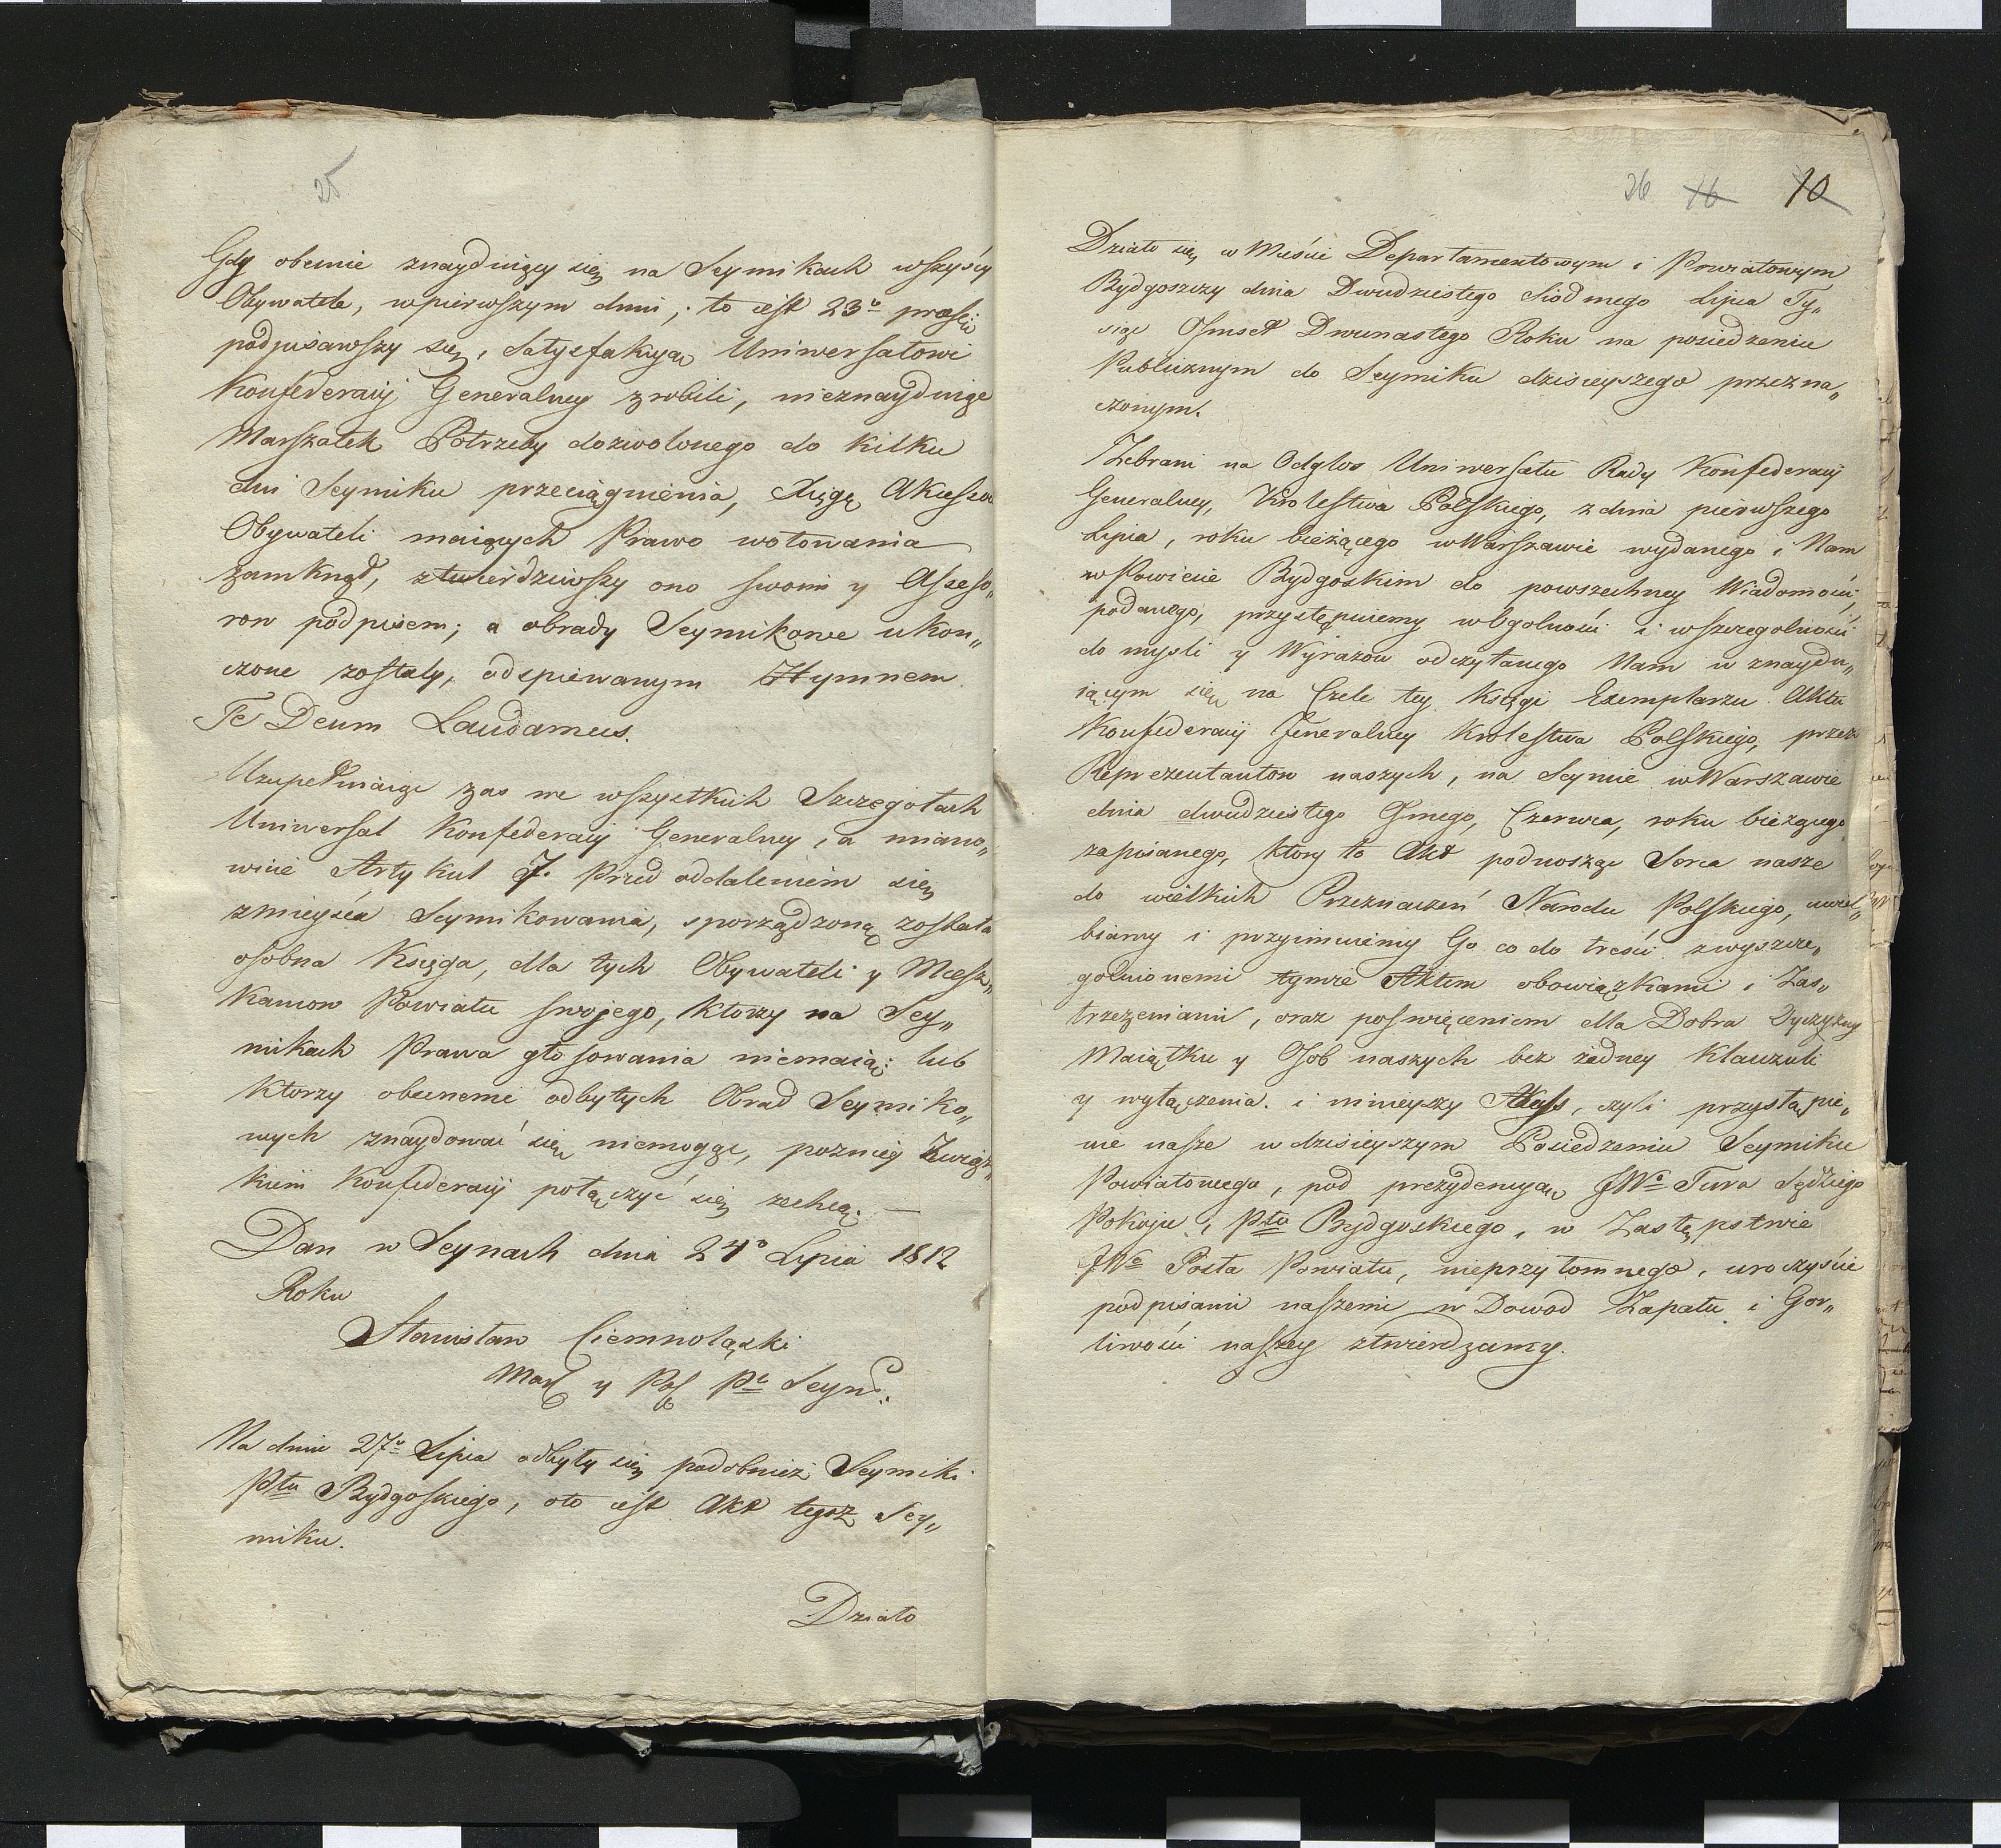 25
Gdy obecnie znayduiący się na Seymikach wszyscy
Obywatele, w pierwszym dniu, to iest 23º praesen
podpisawszy się, Satysfakcyą Uniwersałowi
Konfederacyi Generalney zrobili, nieznayduiąc
Marszałek Potrzeby dozwolonego do kilku
dni Seymiku przeciągnienia, Xięgę Akcessu
Obywateli maiących Prawo wotowania
zamknął, ztwierdziwszy ono swoim y Assesso„
row podpisem; a obrady Seymikowe ukon„
czone zostały, odspiewanym Hymnem
Te Deum Laudamus.
Uzupełniaiąc zas we wszystkich Szczegołach
Uniwersał Konfederacyi Generalney, a miano„
wicie Artykuł 7. Przed oddaleniem się
z mieysca Seymikowania, sporządzoną została
osobna Księga, dla tych Obywateli y Miesz„
kancow Powiatu swojego, ktorzy na Sey„
mikach Prawa głosowania niemaiąc: lub
ktorzy obecnemi odbytych Obrad Seymiko„
wych znaydować się niemogąc, pozniey Związ„
kiem Konfederacyi połączyć się zechcą. —
Dan w Seynach dnia 24º Lipca 1812
Roku
Stanisław Ciemnolązki
Mar y Pos Pu Seyns:
Na dniu 27º Lipca odbyły się podobnież Seymiki
Pttu Bydgoskiego, oto iest Akt tegoż Sey„
miku.
Działo
26 16 10
Działo się w Mieście Departamentowym i Powiatowym
Bydgoszczy dnia Dwudziestego Siodmego Lipca Ty„
siąc Osmset Dwunastego Roku na posiedzeniu
Publicznym do Seymiku dzisieyszego przezna„
czonym.
Zebrani na Odgłos Uniwersału Rady Konfederacyi
Generalney, Krolestwa Polskiego, z dnia pierwszego
Lipca, roku bieżącego w Warszawie wydanego i Nam
w Powiecie Bydgoskim do powszechney Wiadomości
podanego, przystępuiemy w Ogolności i w szczegolności
do mysli y Wyrazow odczytanego Nam w znaydu„
iącym się na Czele tey Księgi Exemplarzu Aktu
Konfederacyi Jeneralney Krolestwa Polskiego, przez
Reprezentantow naszych, na Seymie w Warszawie
dnia dwudziestego Osmego, Czerwca, roku bieżącego
zapisanego, ktory to Akt podnosząc Serca nasze
do wielkich Przeznaczeń Narodu Polskiego, uwiel„
biamy i przyimuiemy Go co do treści z wyszcze„
golnionemi tymże Aktem obowiązkami i Zas„
trzeżeniami, oraz poswięceniem dla Dobra Oyczyzny
Maiątku y Osob naszych bez żadney Klauzuli
y wyłączenia. i ninieyszy Akcess, czyli przystąpie„
nie nasze w dzisieyszym Posiedzeniu Seymiku
Powiatowego, pod prezydencyą JWo Tura Sędziego
Pokoju, Pttu Bydgoskiego, w Zastępstwie
JWo Posła Powiatu, nieprzytomnego, uroczyście
podpisami naszemi w Dowod Zapału i Gor„
liwości naszey ztwierdzamy.